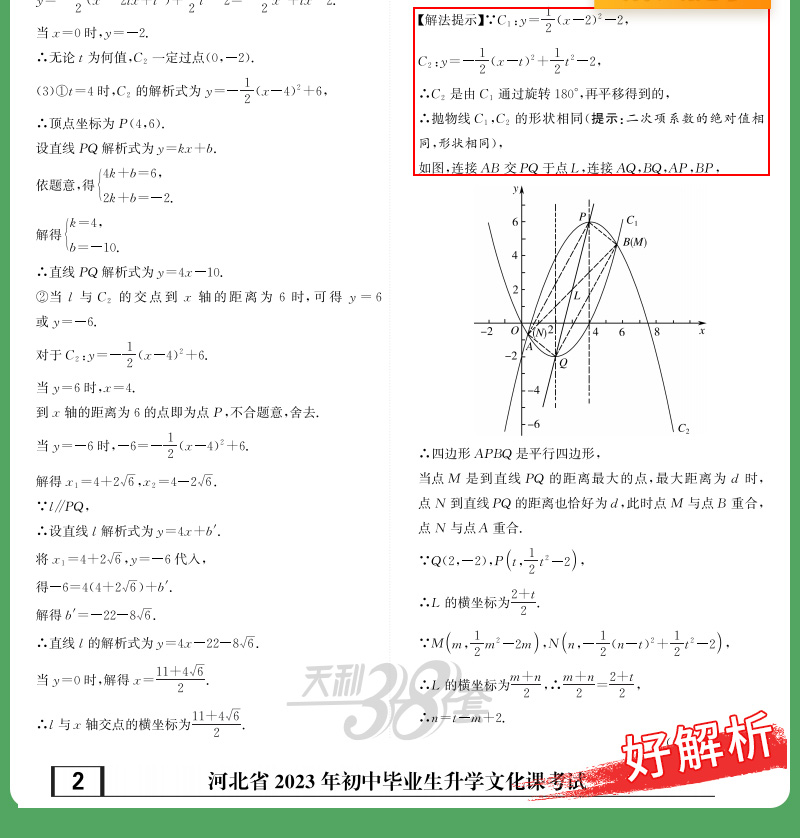 y=-1/2(x²-2tx+t²)+1/2t²-2=-1/2x²+tx-2.
当x=0时,y=-2.
∴无论t为何值,C₂一定过点(0,-2).
(3)①t=4时,C₂的解析式为y=-1/2(x-4)²+6,
∴顶点坐标为P(4,6).
设直线PQ解析式为y=kx+b.
依题意,得{4k+b=6,
2k+b=-2.
解得{k=4,
b=-10.
∴直线PQ解析式为y=4x-10.
②当l与C₂的交点到x轴的距离为6时,可得y=6
或y=-6.
对于C₂:y=-1/2(x-4)²+6.
当y=6时,x=4.
到x轴的距离为6的点即为点P,不合题意,舍去.
当y=-6时,-6=-1/2(x-4)²+6.
解得x₁=4+2√6,x₂=4-2√6.
∵l//PQ,
∴设直线l解析式为y=4x+b′.
将x₁=4+2√6,y=-6代入,
得-6=4(4+2√6)+b′.
解得b′=-22-8√6.
∴直线l的解析式为y=4x-22-8√6.
当y=0时,解得x=(11+4√6)/2.
∴l与x轴交点的横坐标为(11+4√6)/2.
【解法提示】∵C₁:y=1/2(x-2)²-2,
C₂:y=-1/2(x-t)²+1/2t²-2,
∴C₂是由C₁通过旋转180°,再平移得到的,
∴抛物线C₁,C₂的形状相同(提示:二次项系数的绝对值相
同,形状相同),
如图,连接AB交PQ于点L,连接AQ,BQ,AP,BP,
y
6
P
C₁
4
B(M)
2
L
-2
O
(N)
2
4
6
8
x
A
-2
Q
-4
-6
C₂
∴四边形APBQ是平行四边形,
当点M是到直线PQ的距离最大的点,最大距离为d时,
点N到直线PQ的距离也恰好为d,此时点M与点B重合,
点N与点A重合.
∵Q(2,-2),P(t,1/2t²-2),
∴L的横坐标为(2+t)/2.
∵M(m,1/2m²-2m),N(n,-1/2(n-t)²+1/2t²-2),
∴L的横坐标为(m+n)/2,∴(m+n)/2=(2+t)/2,
∴n=t-m+2.
天利38套
2
河北省2023年初中毕业生升学文化课考试
好解析